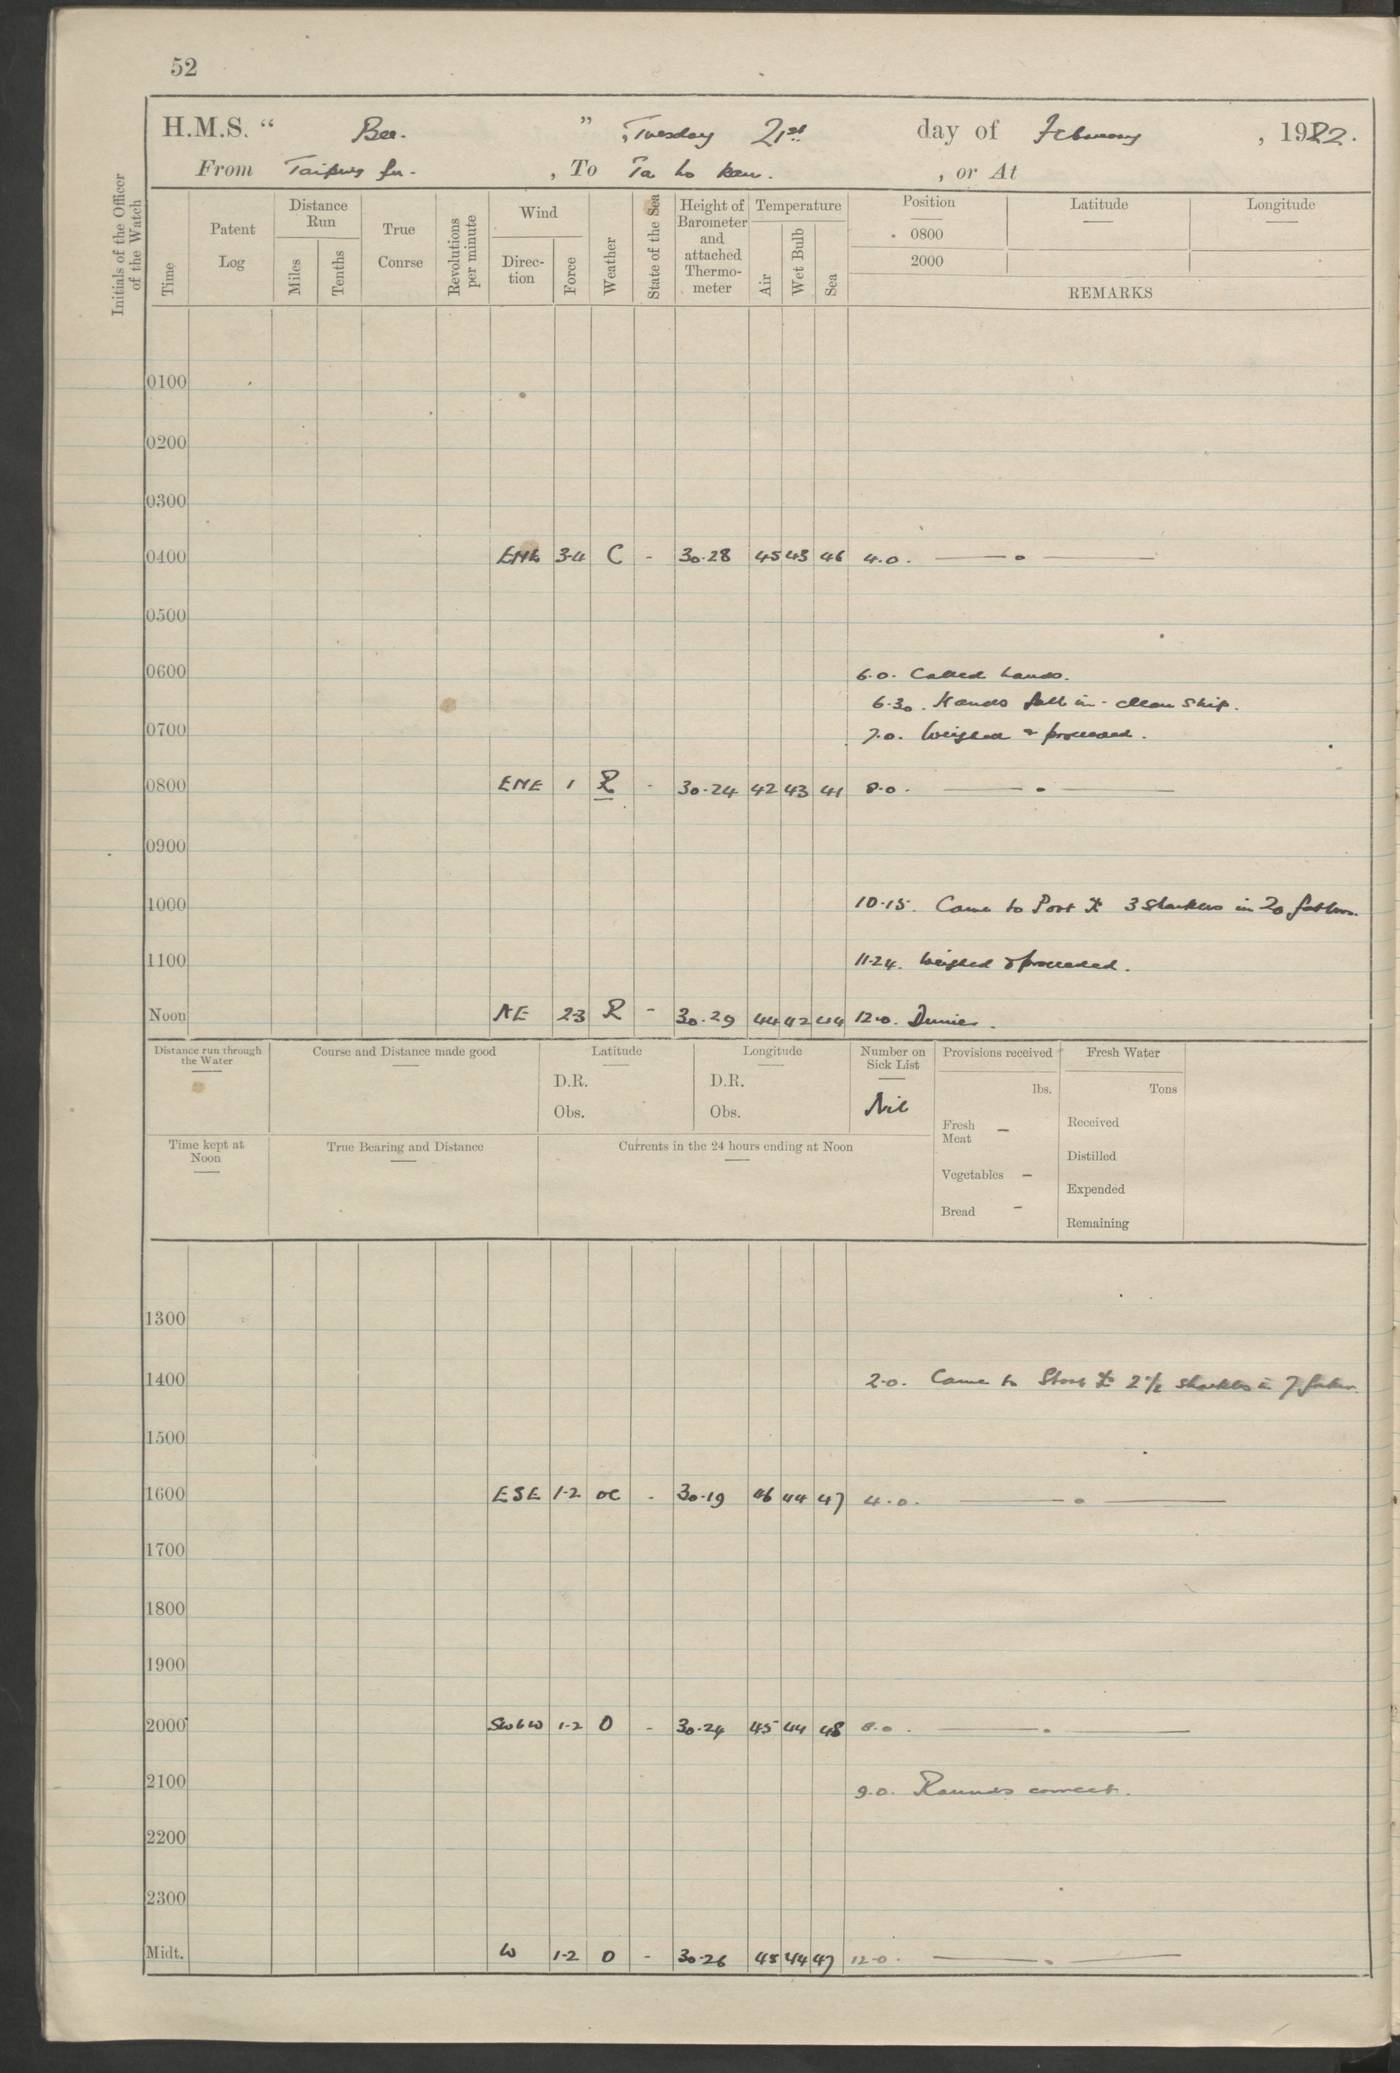 52
H.M.S. “ Bee. ” , Tuesday 21st day of February , 1922.
From Taiping fu. , To Ta ho kau. , or At
Initials of the Officer of the Watch
Time
Patent Log
Distance Run
Miles
Tenths
True Course
Revolutions per minute
Wind
Direction
Force
Weather
State of the Sea
Height of Barometer and attached Thermometer
Temperature
Air
Wet Bulb
Sea
Position
0800
2000
Latitude
Longitude
REMARKS
0100
0200
0300
0400 ENE 3-4 C - 30.28 45 43 46 4.0. — • —
0500
0600 6.0. Called hands.
6.30. Hands fall in - clean ship.
0700 7.0. Weighed & proceeded.
0800 ENE 1 R - 30.24 42 43 41 8.0. — • —
0900
1000 10.15. Came to Port ⚓ 3 shackles in 20 fathoms.
1100 11.24. Weighed & proceeded.
Noon NE 2-3 R - 30.29 44 42 44 12.0. Dinner.
Distance run through the Water
Course and Distance made good
Latitude
D.R.
Obs.
Longitude
D.R.
Obs.
Number on Sick List
Nil
Provisions received
lbs.
Fresh Meat –
Vegetables –
Bread –
Fresh Water
Tons
Received
Distilled
Expended
Remaining
Time kept at Noon
True Bearing and Distance
Currents in the 24 hours ending at Noon
1300
1400 2.0. Came to Stbd ⚓ 2½ shackles in 7 fathoms.
1500
1600 ESE 1-2 oc - 30.19 46 44 47 4.0. — • —
1700
1800
1900
2000 SWbW 1-2 O - 30.24 45 44 48 8.0. — • —
2100 9.0. Rounds correct.
2200
2300
Midt. W 1-2 O - 30.26 45 44 47 12.0. — • —